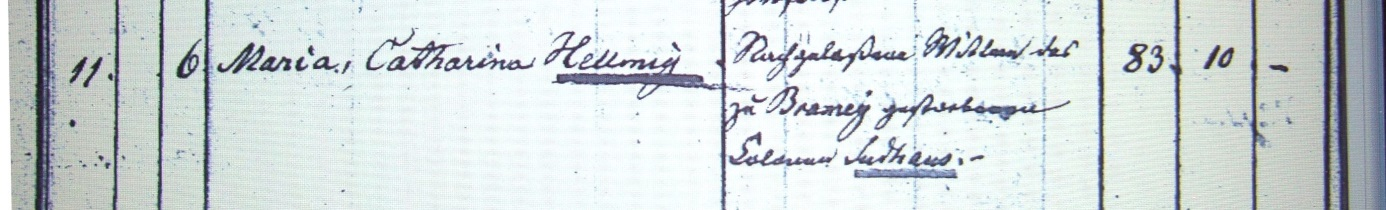 11. 6. Maria, Catharina Hellmig Nachgelaßene Wittwe des 83. 10 -
zu Bramey gestorbenen
Colonen Sudhaus. -